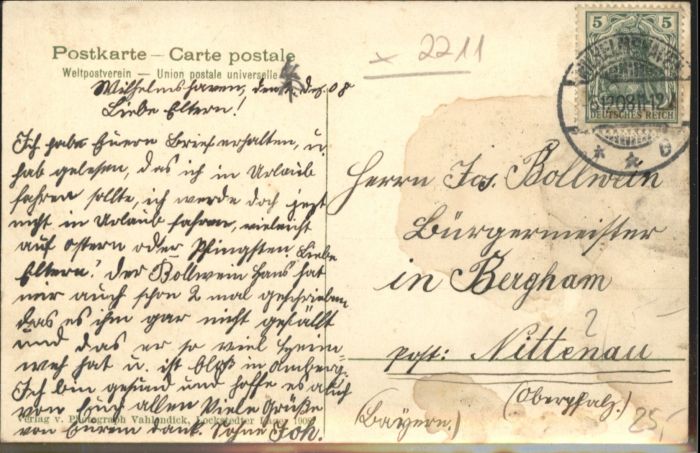 Postkarte – Carte postale
Weltpostverein — Union postale universelle
Wilhelmshaven, den Dez. 08
Liebe Eltern!
Ich habe Euern Brief erhalten, u.
hab gelesen, das ich in Urlaub
fahren sollte, ich werde doch jezt
nicht in Urlaub fahren, vieleicht
auf Ostern oder Pfingsten Liebe
Eltern! Der Bollwein Hans hat
mir auch schon 2 mal geschrieben
das es ihm gar nicht gefällt
und das er so viel Heim-
weh hat u. ist bloß in Amberg.
Ich bin gesund und hoffe es auch
von Euch allen Viele Grüße
von Eurem dank. Sohne Joh.
Verlag v. Photograph Vahlendick, Lockstedter Lager 190
× 2211
5
DEUTSCHES REICH
WILHELMSHAVEN
12.08.11-12
* * c
Herrn Jos. Bollwein
Bürgermeister
in Bergham
?
Post: Nittenau
(Oberpfalz.)
(Bayern.)
25,-